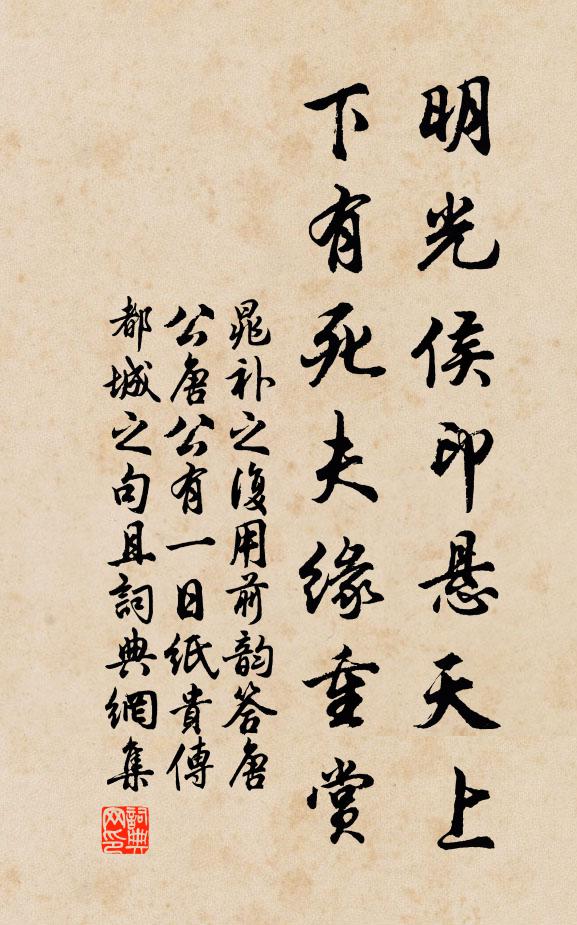 明光侯印悬天上
下有死夫緣重賞
晁补之復用前韵答唐
公唐公有一日紙貴傳
都城之句且詞典網集
詞典
网印